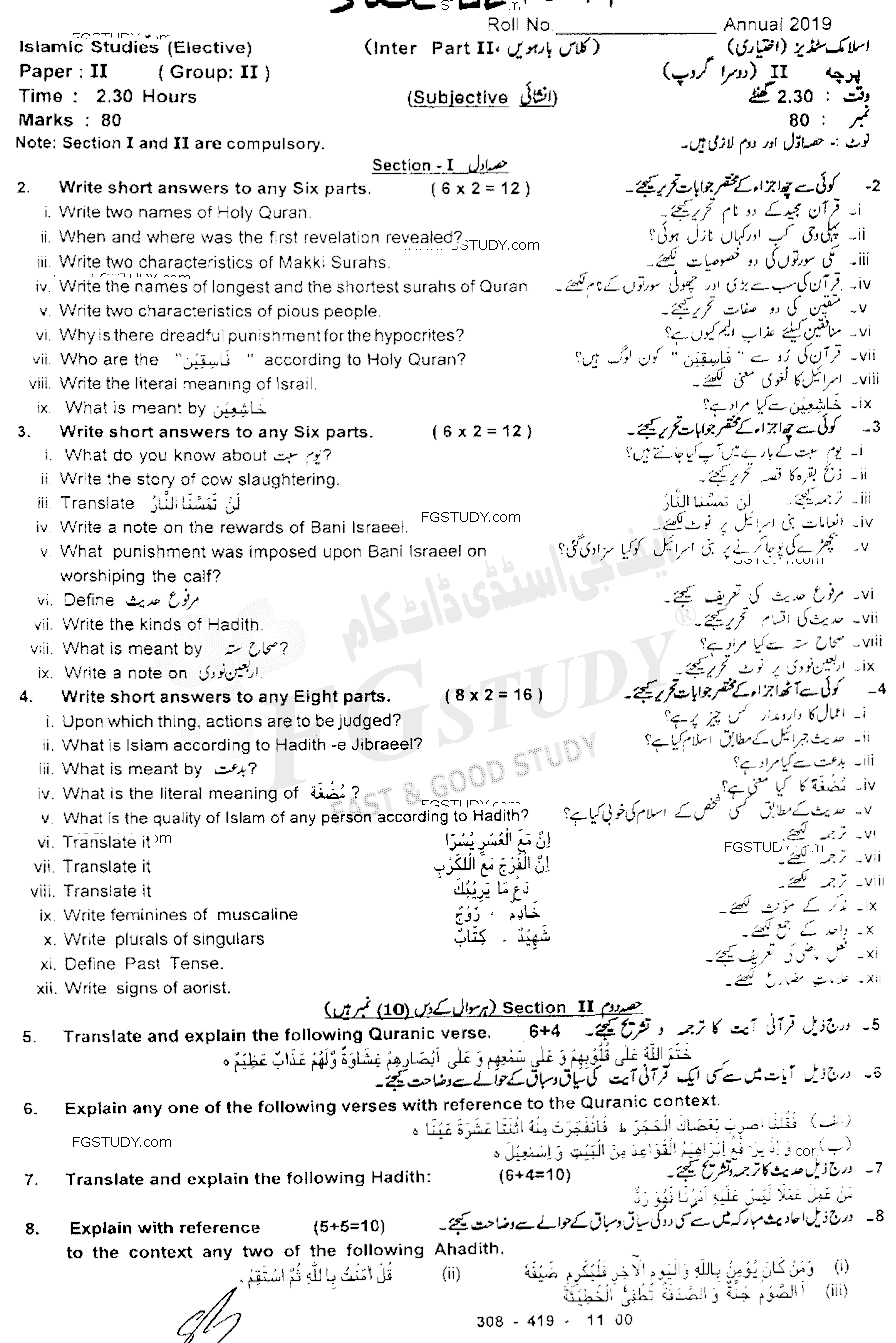 Roll No.____________ Annual 2019
Islamic Studies (Elective) (Inter Part II، کلاس بارہویں) اسلامک سٹڈیز (اختیاری)
Paper : II ( Group: II ) پرچہ II (دوسرا گروپ)
Time : 2.30 Hours (Subjective انشائی) وقت : 2.30 گھنٹے
Marks : 80 نمبر : 80
Note: Section I and II are compulsory. نوٹ :- حصہ اوّل اور دوم لازمی ہیں۔
Section - I حصہ اول
2. Write short answers to any Six parts. ( 6 x 2 = 12 ) 2- کوئی سے چھ اجزاء کے مختصر جوابات تحریر کیجئے۔
i. Write two names of Holy Quran. i۔ قرآن مجید کے دو نام تحریر کیجئے۔
ii. When and where was the first revelation revealed? ii۔ پہلی وحی کب اور کہاں نازل ہوئی؟
FGSTUDY.com
iii. Write two characteristics of Makki Surahs. iii۔ مکی سورتوں کی دو خصوصیات لکھئے۔
iv. Write the names of longest and the shortest surahs of Quran iv۔ قرآن کی سب سے بڑی اور چھوٹی سورتوں کے نام لکھئے۔
v. Write two characteristics of pious people. v۔ متقین کی دو صفات تحریر کیجئے۔
vi. Why is there dreadful punishment for the hypocrites? vi۔ منافقین کیلئے عذاب الیم کیوں ہے؟
vii. Who are the " فَاسِقِيْن " according to Holy Quran? vii۔ قرآن کی رُو سے " فَاسِقِيْن " کون لوگ ہیں؟
viii. Write the literal meaning of Israil. viii۔ اسرائیل کا لغوی معنی لکھئے۔
ix. What is meant by خَاشِعِيْن ix۔ خَاشِعِيْن سے کیا مراد ہے؟
3. Write short answers to any Six parts. ( 6 x 2 = 12 ) 3- کوئی سے چھ اجزاء کے مختصر جوابات تحریر کیجئے۔
i. What do you know about یوم سبت? i۔ یوم سبت کے بارے میں آپ کیا جانتے ہیں؟
ii Write the story of cow slaughtering. ii۔ ذبح بقرہ کا قصہ تحریر کیجئے۔
iii Translate لَنْ تَمَسَّنَا النَّارُ iii۔ ترجمہ کیجئے۔ لَنْ تَمَسَّنَا النَّارُ
FGSTUDY.com
iv. Write a note on the rewards of Bani Israeel. iv۔ انعامات بنی اسرائیل پر نوٹ لکھئے۔
v. What punishment was imposed upon Bani Israeel on v۔ بچھڑے کی پوجا کرنے پر بنی اسرائیل کو کیا سزا دی گئی؟
worshiping the calf?
vi. Define مرفوع حدیث vi۔ مرفوع حدیث کی تعریف کیجئے۔
vii. Write the kinds of Hadith. vii۔ حدیث کی اقسام تحریر کیجئے۔
viii. What is meant by صحاح ستہ? viii۔ صحاح ستہ سے کیا مراد ہے؟
ix. Write a note on اربعین نووی. ix۔ اربعین نووی پر نوٹ تحریر کیجئے۔
ایف جی اسٹڈی ڈاٹ کام
FGSTUDY ®
FAST & GOOD STUDY
4. Write short answers to any Eight parts. ( 8 x 2 = 16 ) 4- کوئی سے آٹھ اجزاء کے مختصر جوابات تحریر کیجئے۔
i. Upon which thing, actions are to be judged? i۔ اعمال کا دارومدار کس چیز پر ہے؟
ii. What is Islam according to Hadith -e Jibraeel? ii۔ حدیث جبرائیل کے مطابق اسلام کیا ہے؟
iii. What is meant by بدعت? iii۔ بدعت سے کیا مراد ہے؟
iv. What is the literal meaning of مُضْغَة ? iv۔ مُضْغَة کا کیا معنی ہے؟
v. What is the quality of Islam of any person according to Hadith? v۔ حدیث کے مطابق کسی شخص کے اسلام کی خوبی کیا ہے؟
vi. Translate it اِنَّ مَعَ الْعُسْرِ يُسْرًا vi۔ ترجمہ لکھئے۔
FGSTUDY
vii. Translate it اِنَّ الْفَرَجَ مَعَ الْكَرْبِ vii۔ ترجمہ لکھئے۔
viii. Translate it دَعْ مَا يَرِيْبُكَ viii۔ ترجمہ لکھئے۔
ix. Write feminines of muscaline خَادِمٌ ۔ زَوْجٌ ix۔ مذکر کے مؤنث لکھئے۔
x. Write plurals of singulars شَهِيْدٌ ۔ كِتَابٌ x۔ واحد کے جمع لکھئے۔
xi. Define Past Tense. xi۔ فعل ماضی کی تعریف کیجئے۔
xii. Write signs of aorist. xii۔ علامات مضارع لکھئے۔
حصہ دوم Section II (ہر سوال کے دس (10) نمبر ہیں)
5. Translate and explain the following Quranic verse. 6+4 5- درج ذیل قرآنی آیت کا ترجمہ و تشریح کیجئے۔
خَتَمَ اللّٰهُ عَلٰى قُلُوْبِهِمْ وَ عَلٰى سَمْعِهِمْ وَ عَلٰى اَبْصَارِهِمْ غِشَاوَةٌ وَّلَهُمْ عَذَابٌ عَظِيْمٌ ه
6- درج ذیل آیات میں سے کسی ایک قرآنی آیت کی سیاق و سباق کے حوالے سے وضاحت کیجئے۔
6. Explain any one of the following verses with reference to the Quranic context.
(الف) فَقُلْنَا اضْرِبْ بِعَصَاكَ الْحَجَرَ ط فَانْفَجَرَتْ مِنْهُ اثْنَتَا عَشْرَةَ عَيْنًا ه
FGSTUDY.com
(ب) وَ اِذْ يَرْفَعُ اِبْرَاهِيْمُ الْقَوَاعِدَ مِنَ الْبَيْتِ وَ اِسْمٰعِيْلُ ه
7. Translate and explain the following Hadith: (6+4=10) 7- درج ذیل حدیث کا ترجمہ و تشریح کیجئے۔
مَنْ عَمِلَ عَمَلًا لَيْسَ عَلَيْهِ اَمْرُنَا فَهُوَ رَدٌّ
8. Explain with reference (5+5=10) 8- درج ذیل احادیث مبارکہ میں سے کسی دو کی سیاق و سباق کے حوالے سے وضاحت کیجئے۔
to the context any two of the following Ahadith.
(i) وَمَنْ كَانَ يُؤْمِنُ بِاللّٰهِ وَالْيَوْمِ الْاٰخِرِ فَلْيُكْرِمْ ضَيْفَهٗ (ii) قُلْ اٰمَنْتُ بِاللّٰهِ ثُمَّ اسْتَقِمْ۔
(iii) اَلصَّوْمُ جُنَّةٌ وَ الصَّدَقَةُ تُطْفِئُ الْخَطِيْئَةَ
308 - 419 - 11 00